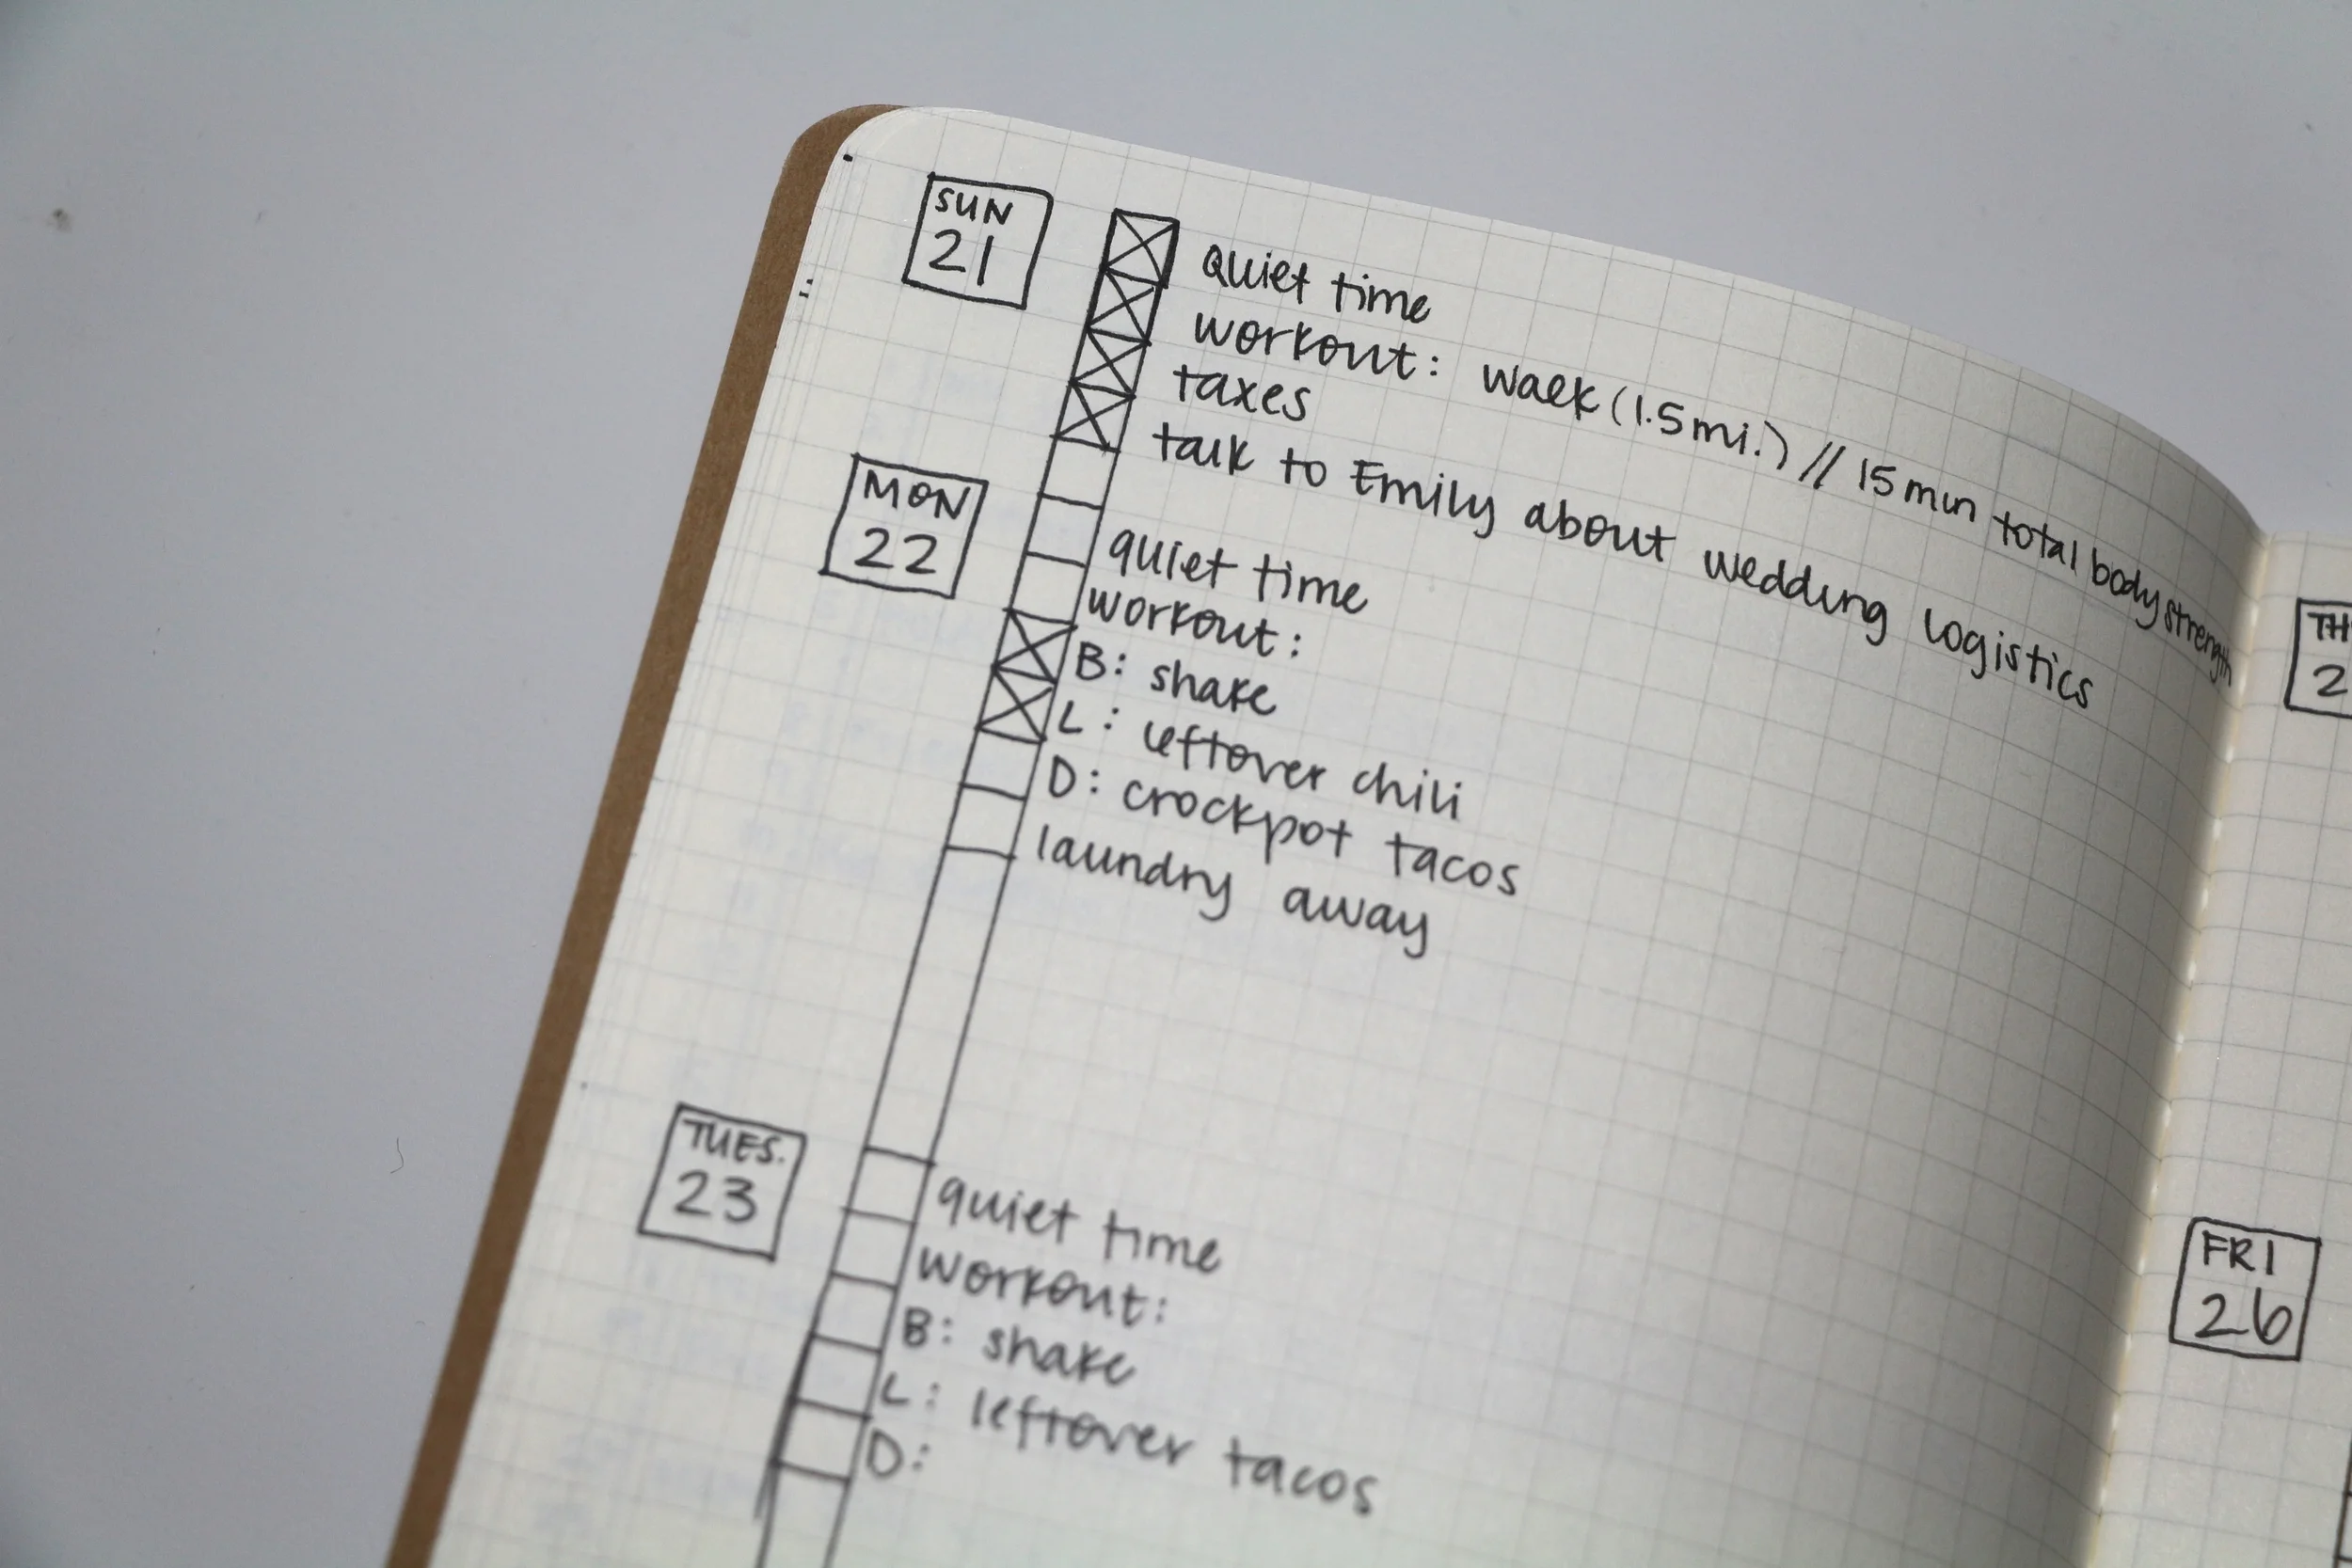 SUN
21
Quiet time
workout: walk (1.5 mi.) // 15 min total body strength
taxes
talk to Emily about wedding logistics
MON
22
quiet time
workout:
B: shake
L: leftover chili
D: crockpot tacos
laundry away
TUES.
23
quiet time
workout:
B: shake
L: leftover tacos
D:
TH
2
FRI
26